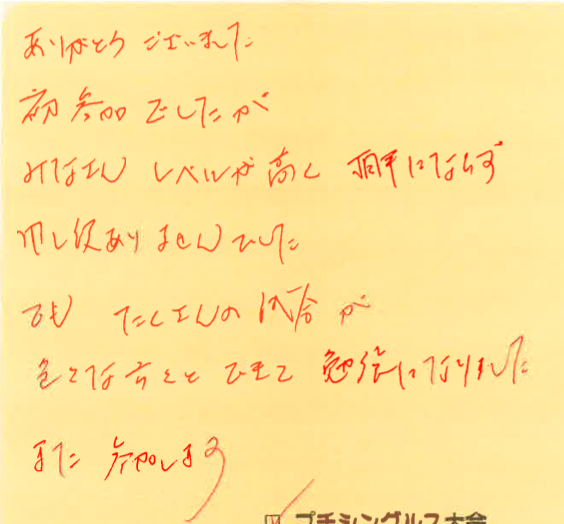 ありがとうございました
初参加でしたが
みなさん レベルが高く 相手にならず
申し訳ありませんでした
でも たくさんの試合が
色々な方々とできて 勉強になりました
また 参加します
プチシングルス大会